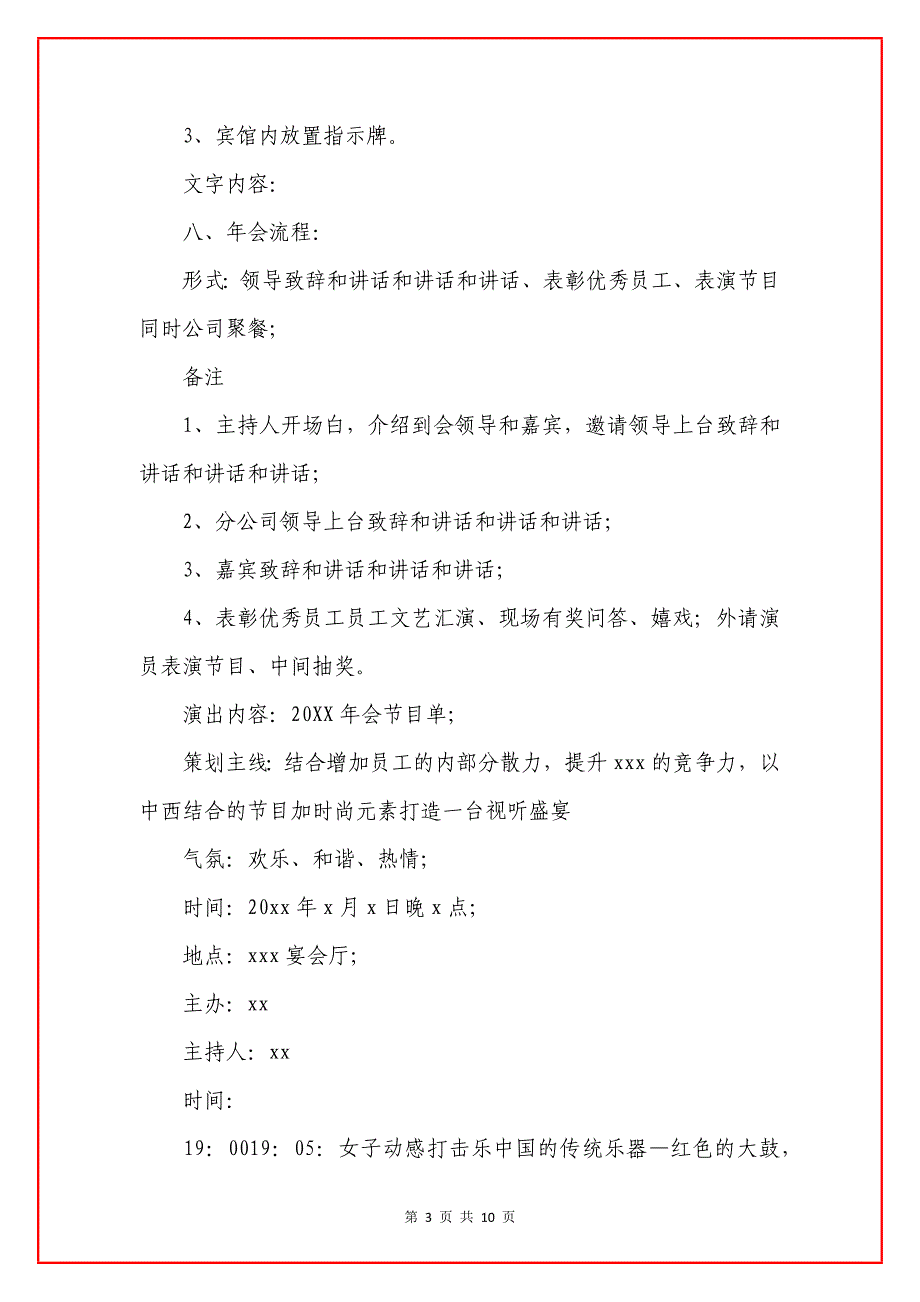 3、宾馆内放置指示牌。
文字内容：
八、年会流程：
形式：领导致辞和讲话和讲话和讲话、表彰优秀员工、表演节目
同时公司聚餐；
备注
1、主持人开场白，介绍到会领导和嘉宾，邀请领导上台致辞和
讲话和讲话和讲话；
2、分公司领导上台致辞和讲话和讲话和讲话；
3、嘉宾致辞和讲话和讲话和讲话；
4、表彰优秀员工员工文艺汇演、现场有奖问答、嬉戏；外请演
员表演节目、中间抽奖。
演出内容：20XX 年会节目单；
策划主线：结合增加员工的内部分散力，提升 xxx 的竞争力，以
中西结合的节目加时尚元素打造一台视听盛宴
气氛：欢乐、和谐、热情；
时间：20xx 年 x 月 x 日晚 x 点；
地点：xxx 宴会厅；
主办：xx
主持人：xx
时间：
19：0019：05：女子动感打击乐中国的传统乐器—红色的大鼓，
第 3 页 共 10 页